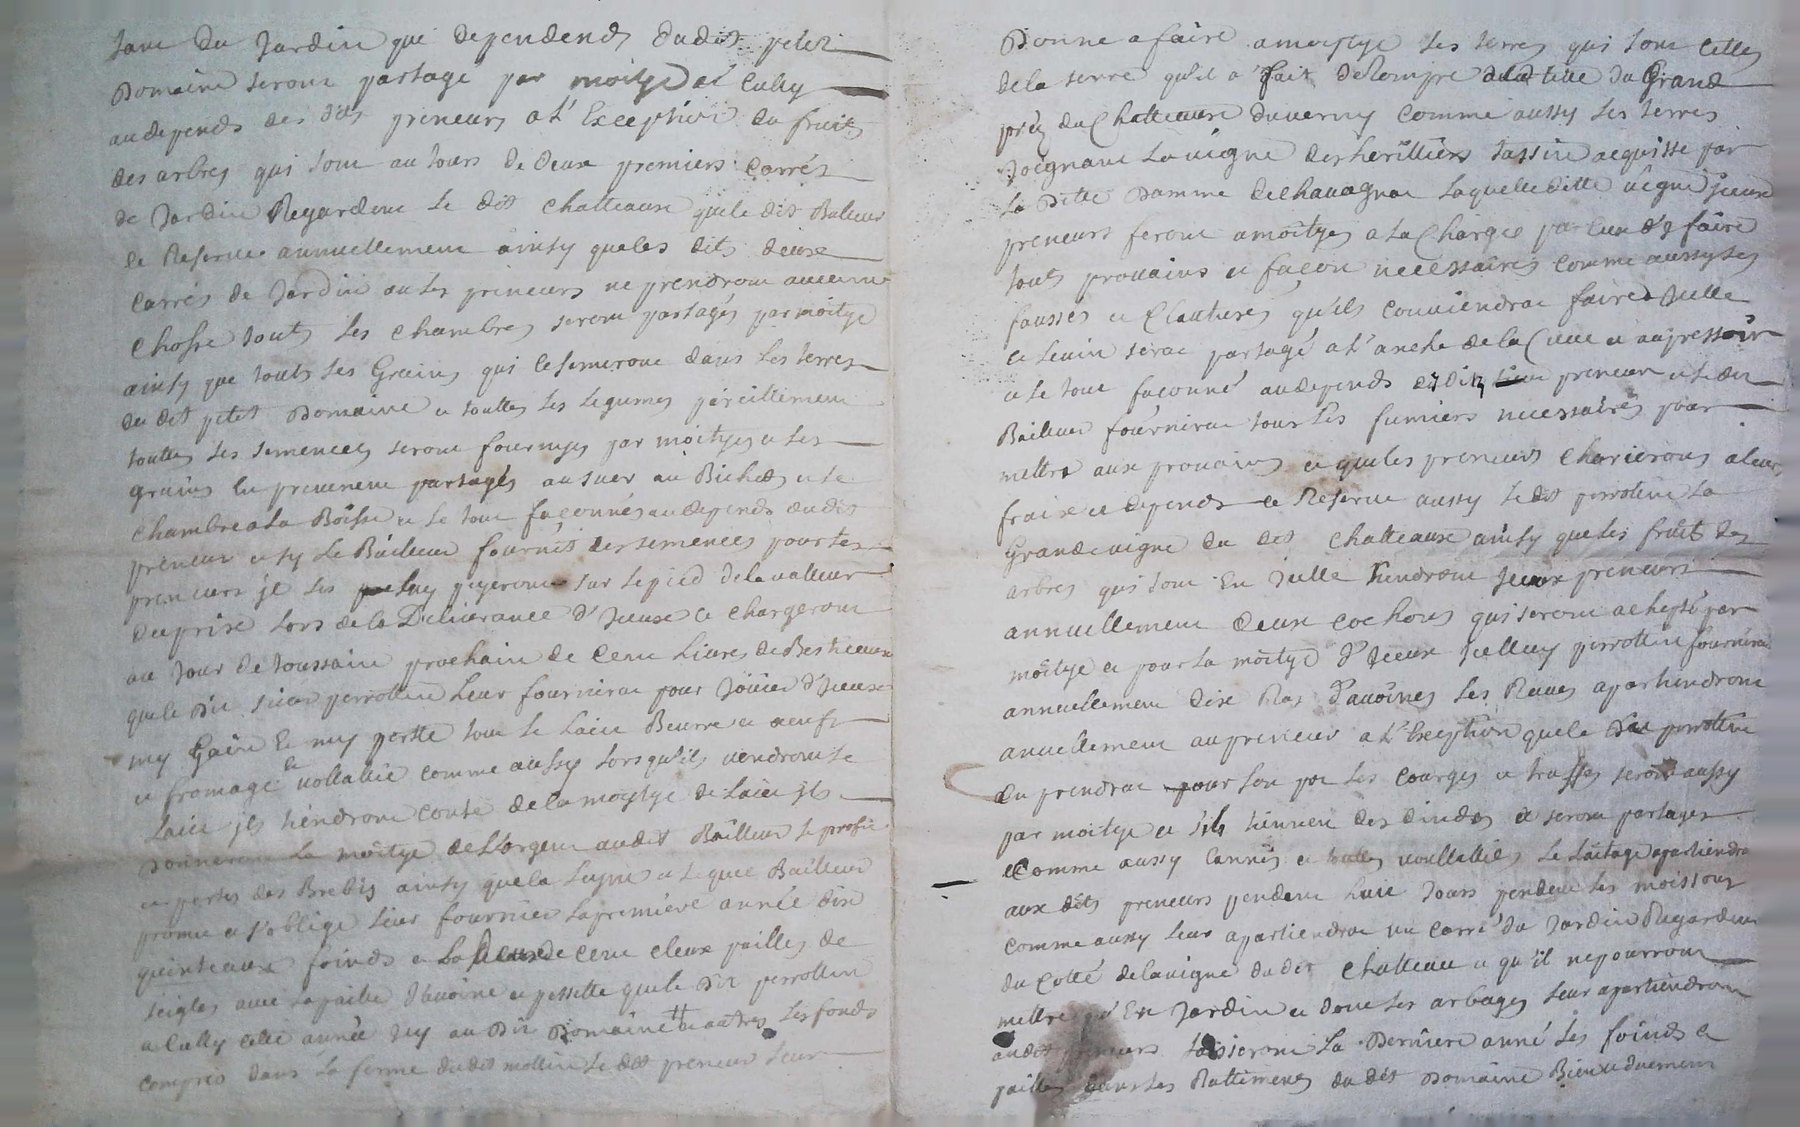 tant du Jardin que dependends dudit petit
Domaine seront partagé par moitye et Culty
audepends des dits preneurs a L'Exception du fruits
des arbres qui sont au tours de deux premiers Carrés
de Jardin Regardent le dit chatteaux que le dit Bailleur
se Reserve annuellement ainsy que les dits deux
Carrés de Jardin ou les preneurs ne prendront aucune
chosse touts les chambres seront partagés par moitye
ainsy que touts les Grains qui se semeront dans les terres
du dit petit Domaine et touttes les legumes pareillement
touttes les semences seront fournyes par moityes et les
grains En provenent partagés au suer au Bichet et le
chambre a la Boisse et le tout façonnés audepends dudit
preneur et sy le Bailleur fournit les semences pour les
preneurs je les luy payeront sur le pied de la valleur
du prix lors de la Deliverance d'Jceux et chargeront
au Jour de toussaint prochain de Cent Livres de Bestieaux
que le dit sieur perrottin leur fournirat pour Joüir d'Jceux
my Gain Et my pertte tout le Laict Beurre et oeufs
et fromage et vollallie comme aussy lorsqu'ils vendront le
Laict ils tiendront conte de la moytye de Laict ils
donneront La moitye de L'argent audit Bailleur le profit
et pertes des Brebis ainsy que la Layne et le quel Bailleur
promet et s'oblige leur fournir la premiere année dix
quinteaux foinds et de cent cleux pailles de
seigles avec la paille d'avoine et pessette que le dit perrottin
a Culty cette année Jcy au dit Domaine et autres les fonds
compris dans la ferme dudit mollin le dit preneur leur
Donne a faire a moytye les terres qui sont Celles
de la serve qu'il a fait deRompre du Grand
prez du Chatteaux duverny comme aussy les terres
Joignant La vigne des herittiers tassin acquisse par
La ditte Damme dechavagnac Laquelle ditte vigne Jceux
preneurs feront a moityes a la Charge par Eux d'y faire
touts provains et façon necessaires comme aussy les
fausses et Clautures qu'ils conviendrat faire a Jcelle
et le vin serat partagé a L'anche de la Cuve et aupressoir
et le tout façonné audepends dudit preneur et le dit
Bailleur fournirat tous les fumiers necessaires pour
mettre aux provains et que les preneurs charierons a leurs
fraix et depends se Reserve aussy le dit perrottin La
Grande vigne du dit chatteaux ainsy que les fruits des
arbres qui sont En Jcelle tiendront Jceux preneurs
annuellement deux cochons qui seront achepté par
moitye et pour La moitye d'Jceux Jcelluy perrottin fournirat
annuellement dix Ras d'avoines Les Raves apartiendront
annuellement au preneur a L'Exception que le dit perrottin
En prendrat pour son pot les courges et truffes seront aussy
par moitye et s'ils tiennent des dindes et seront partages
Comme aussy Cannes et touttes vollallies Le Laitage apartiendra
aux dits preneurs pendent huit Jours pendent les moissons
comme aussy leur apartiendrat un carré du Jardin Regardent
du Cotté de la vigne du dit chatteau et qu'il ne pourront
mettre qu'En Jardin et dont les arbages leur apartiendront
audit preneurs laisseront La Derniere anné les foinds et
pailles dans les Battiments du dit Domaine Bien et duement